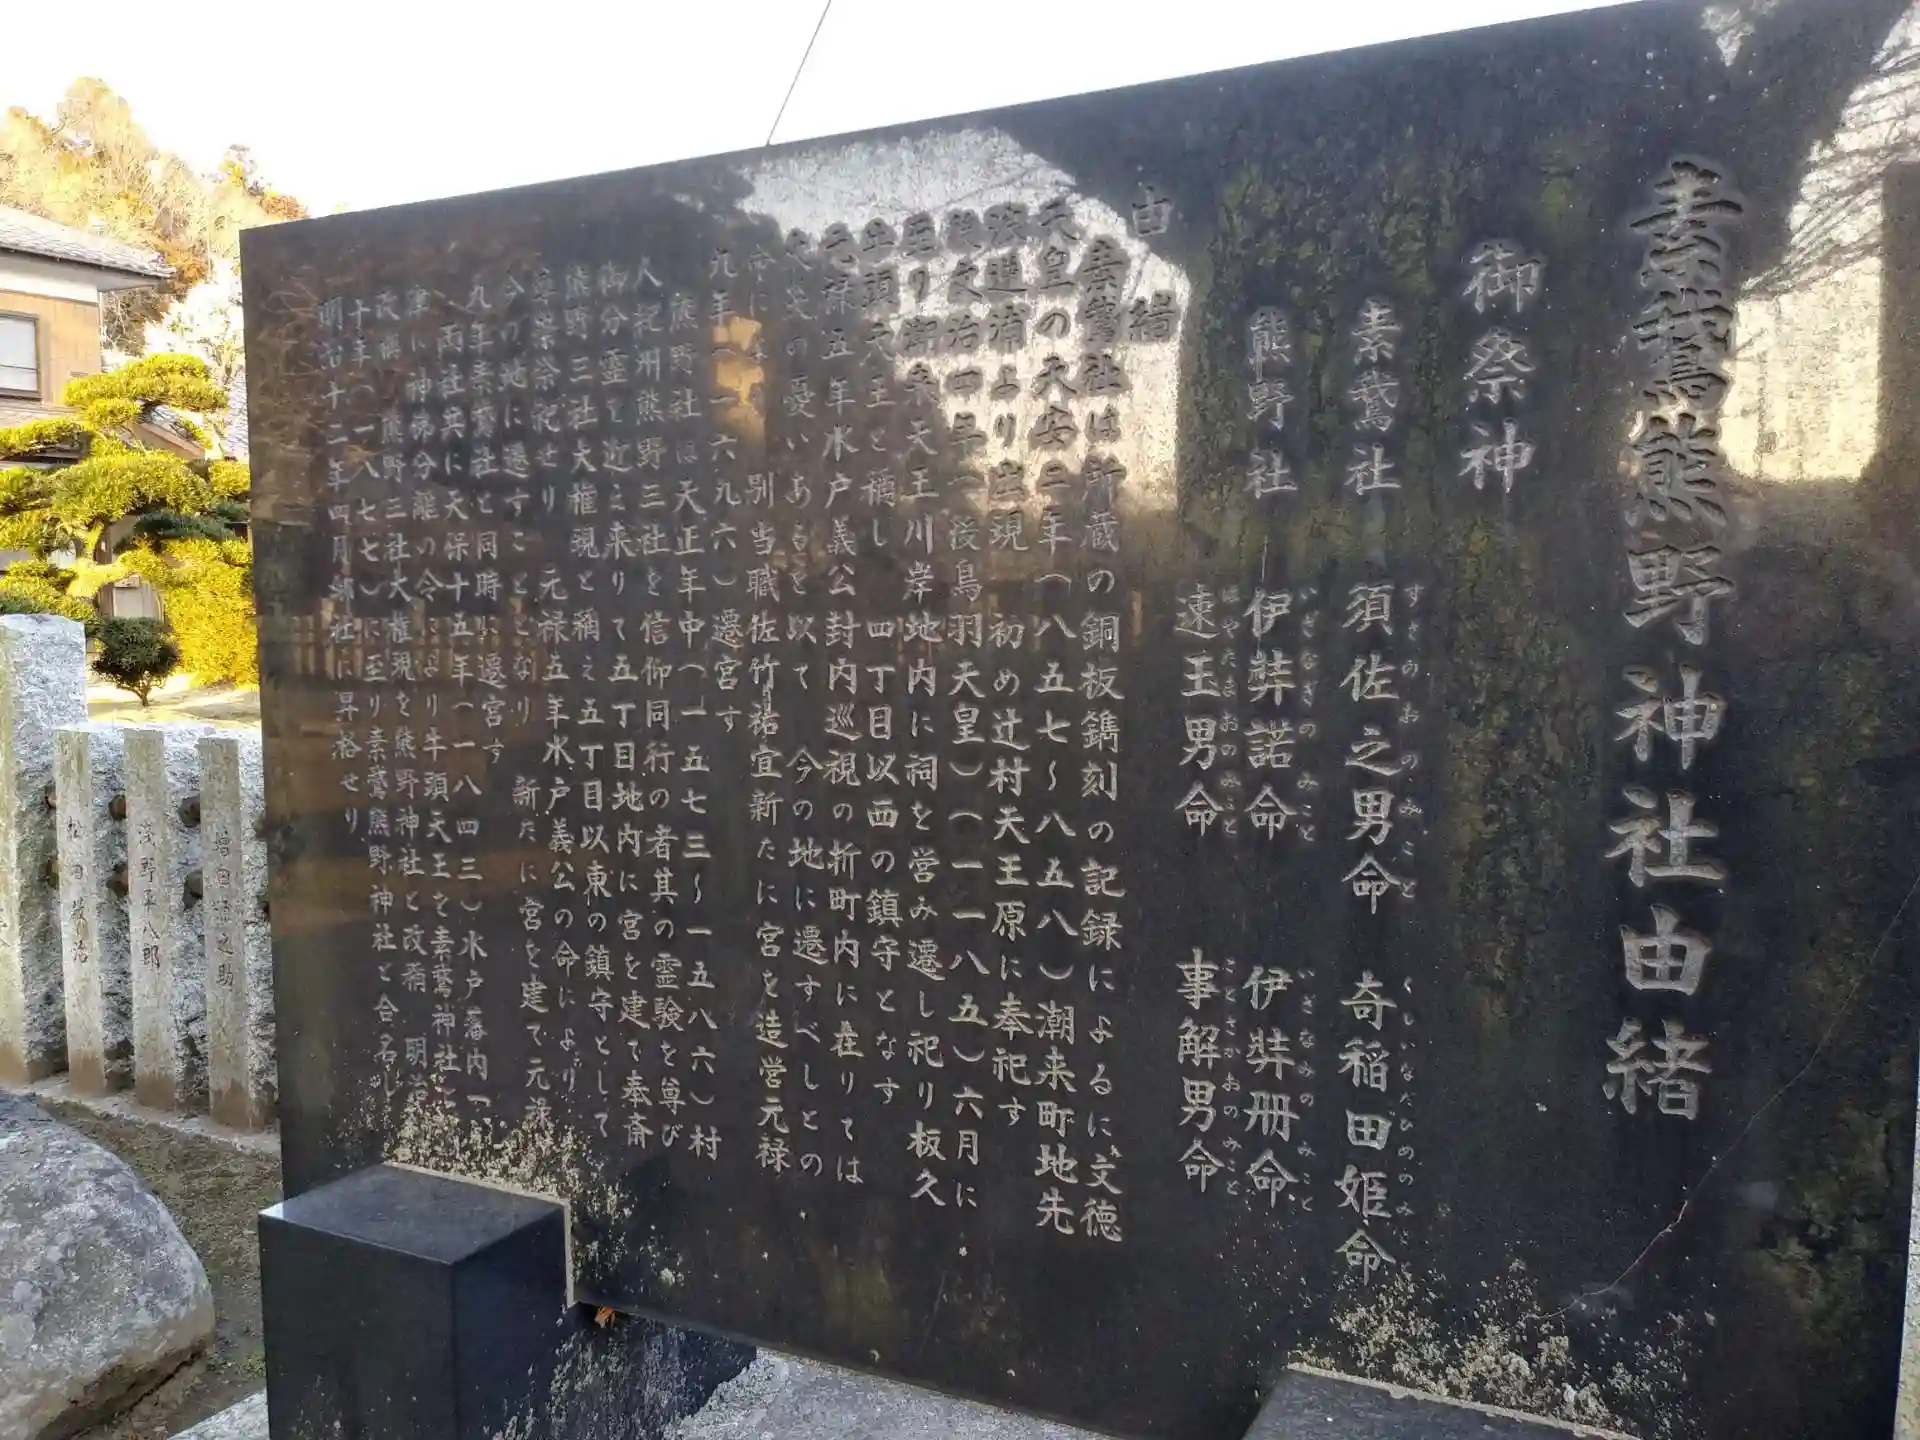 素鵞熊野神社由緒
御祭神
素鵞社 須佐之男命 奇稲田姫命
すさのおのみこと くしいなだひめのみこと
熊野社 伊弉諾命 伊弉冊命
いざなぎのみこと いざなみのみこと
速玉男命 事解男命
はやたまおのみこと ことさかおのみこと
由緒
素鵞社は所蔵の銅板鐫刻の記録によるに文徳
天皇の天安二年(八五七～八五八)潮来町地先
浪逆浦より出現 初め辻村天王原に奉祀す
後文治四年(後鳥羽天皇)(一一八五)六月に
至り御来天王川岸地内に祠を営み遷し祀り板久
牛頭天王と稱し 四丁目以西の鎮守となす
元禄五年水戸義公封内巡視の折町内に在りては
火災の憂いあるを以て 今の地に遷すべしとの
命により 別当職佐竹祐宜新たに宮を造営元禄
九年(一六九六)遷宮す
熊野社は天正年中(一五七三～一五八六)村
人紀州熊野三社を信仰同行の者其の霊験を尊び
御分霊を迎え来りて五丁目地内に宮を建て奉斎
熊野三社大権現と稱え五丁目以東の鎮守として
尊崇祭祀せり 元禄五年水戸義公の命により
今の地に遷すこととなり 新たに宮を建て元禄
九年素鵞社と同時に遷宮す
両社共に天保十五年(一八四三)水戸藩内一
神佛分離の令により牛頭天王を素鵞神社と
改稱 熊野三社大権現を熊野神社と改稱 明治
十年(一八七七)に至り素鵞熊野神社と合名し
明治十二年四月郷社に昇格せり
之助
浅野平八郎
松田